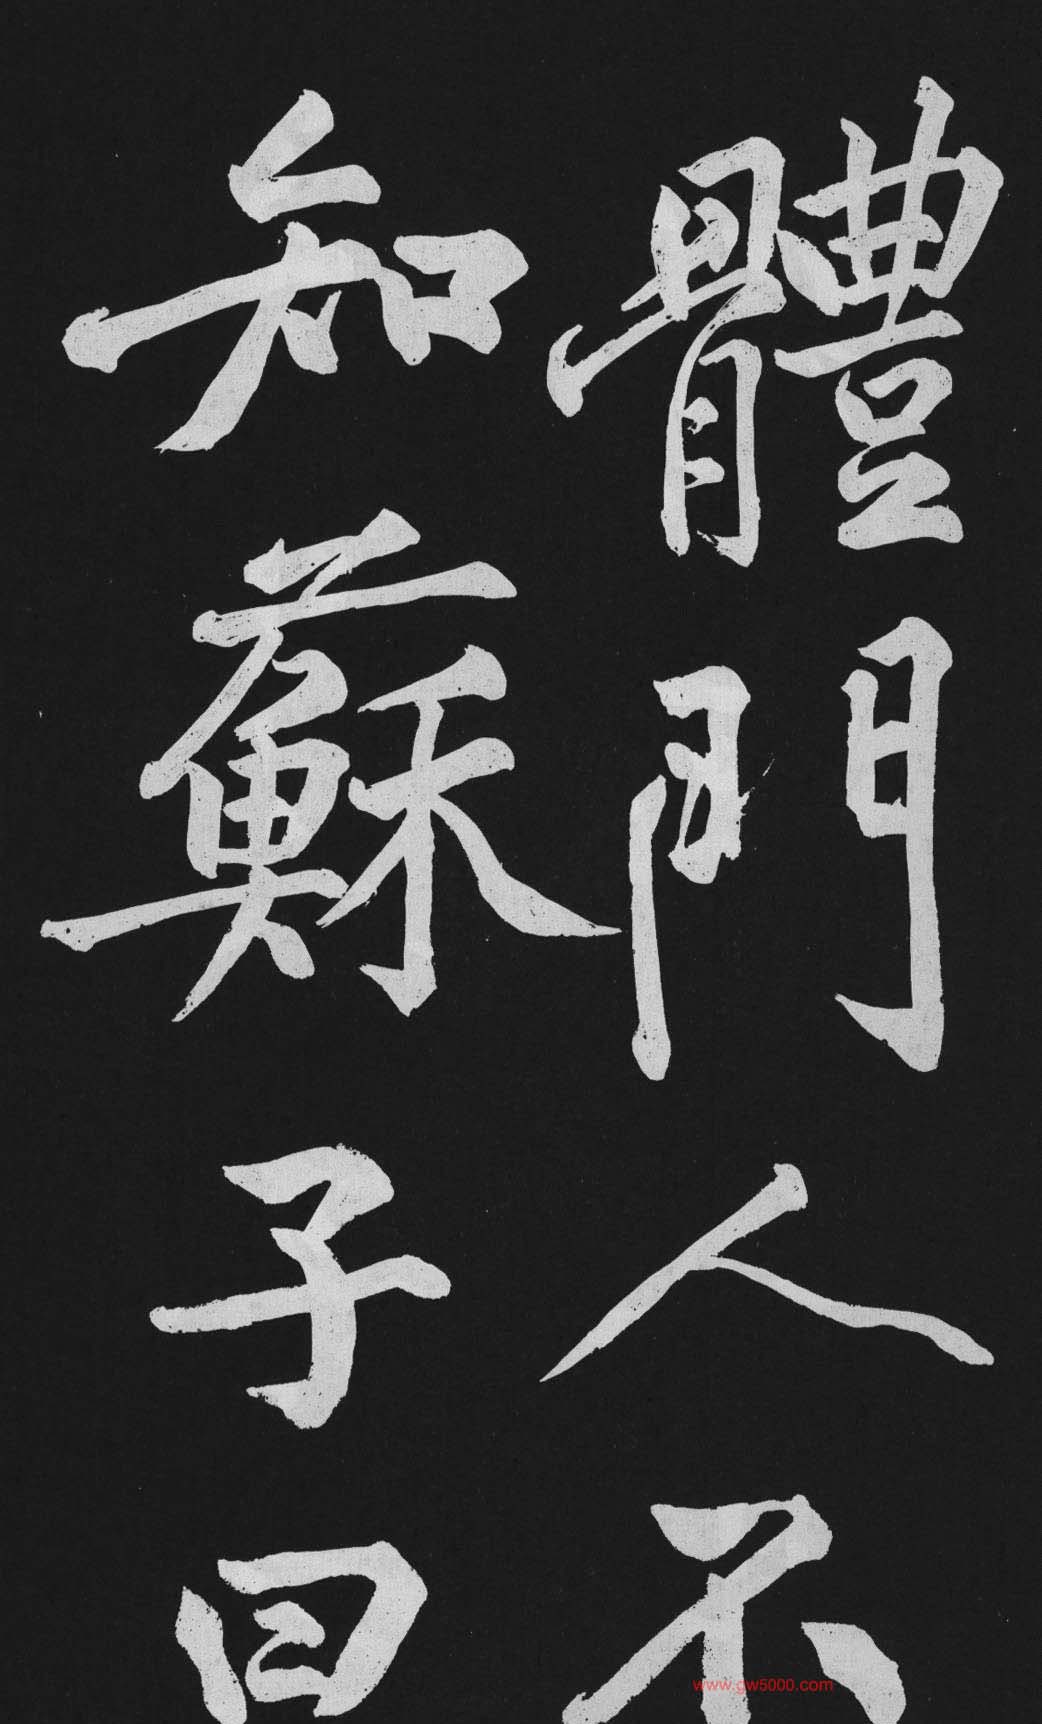 體門人不
知蘇子曰
www.gw5000.com